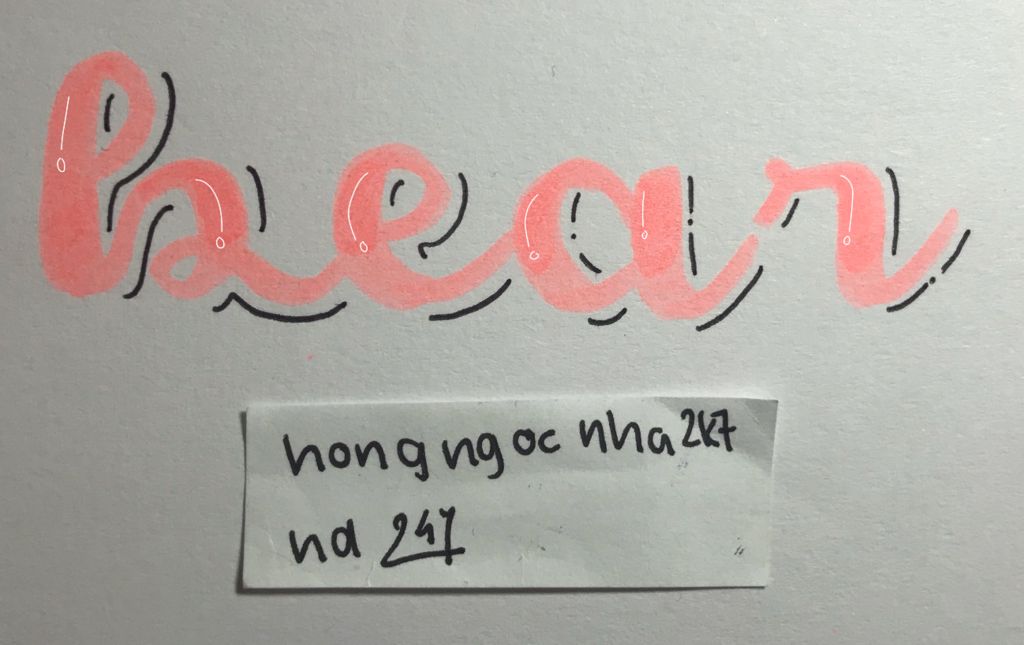 bear
hongngoc nha2k7
nd 247